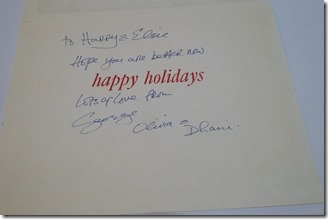 To Harry & Elsie
Hope you are better now
happy holidays
Lots of Love from
George
Olivia & Dhani.